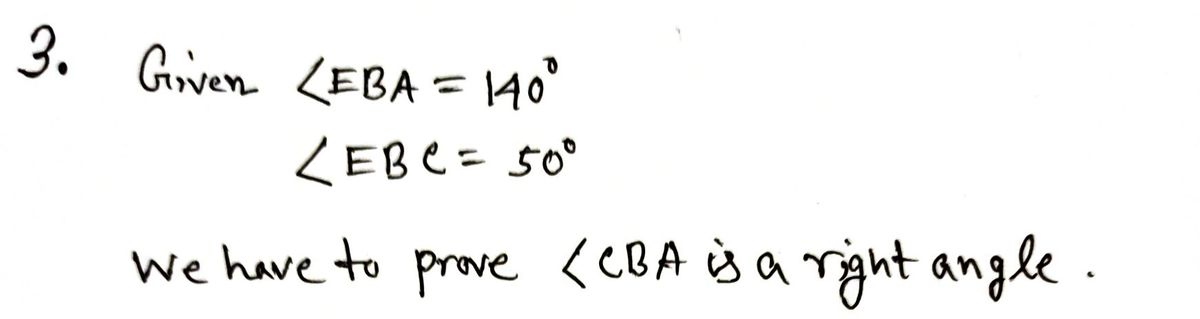 3. Given <EBA = 140°
<EBC = 50°
We have to prove <CBA is a right angle.